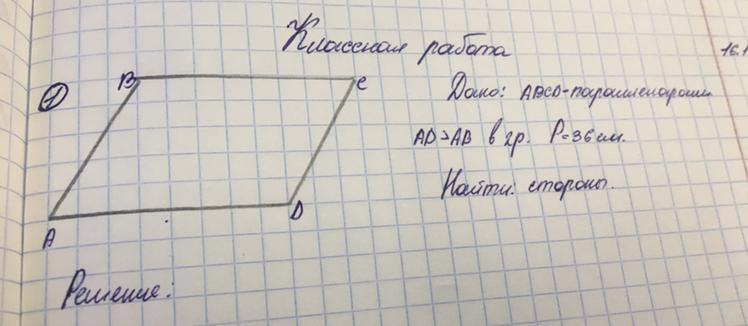 Классная работа
16.1
①
B
C
Дано: ABCD-параллелограмм
AD>AB в 2р. P=36см.
Найти: стороны.
A
D
Решение: